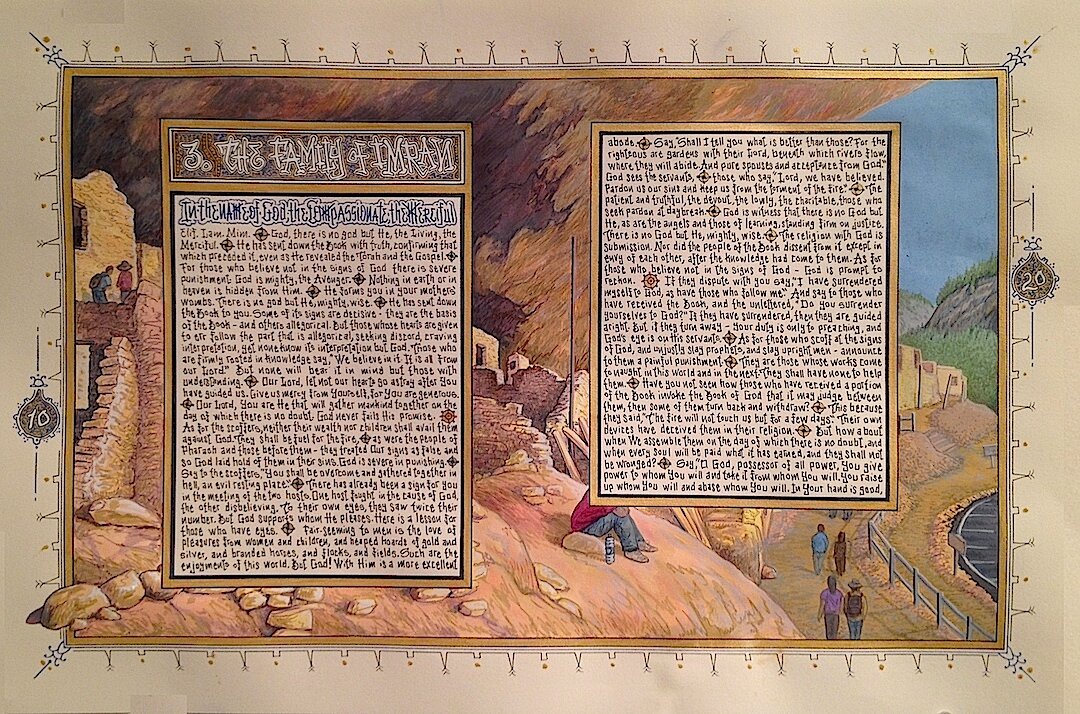 3. THE FAMILY of IMRAN
In the NAME of God, the COMPASSIONATE, the MERCIFUL
Elif. Lam. Mim. God, there is no god but He, the Living, the
Merciful. He has sent down the Book with truth, confirming that
which preceded it, even as He revealed the Torah and the Gospel.
For those who believe not in the signs of God there is severe
punishment. God is mighty, the Avenger. Nothing in earth or in
heaven is hidden from Him. He forms you in your mothers'
wombs. There is no god but He, mighty, wise. He has sent down
the Book to you. Some of its signs are decisive - they are the basis
of the Book - and others allegorical. But those whose hearts are given
to err follow the part that is allegorical, seeking discord, craving
interpretation, yet none know its interpretation but God. Those who
are firmly rooted in knowledge say, "We believe in it. It is all from
our Lord." But none will bear it in mind but those with
understanding. Our Lord, let not our hearts go astray after You
have guided us. Give us mercy from Yourself, for You are generous.
Our Lord, You are He that will gather mankind together on the
day of which there is no doubt. God never fails His promise.
As for the scoffers, neither their wealth nor children shall avail them
against God. They shall be fuel for the fire, as were the people of
Pharaoh and those before them - they treated Our signs as false and
so God laid hold of them in their sins. God is severe in punishing.
Say to the scoffers, "You shall be overcome and gathered together in
hell, an evil resting place." There has already been a sign for you
in the meeting of the two hosts. One host fought in the cause of God,
the other disbelieving. To their own eyes, they saw twice their
number. But God supports whom He pleases. Here is a lesson for
those who have eyes. Fair-seeming to men is the love of
pleasures from women and children, and heaped hoards of gold and
silver, and branded horses, and flocks, and fields. Such are the
enjoyments of this world. But God! With Him is a more excellent
abode. Say, "Shall I tell you what is better than those? For the
righteous are gardens with their Lord, beneath which rivers flow,
where they will abide. And pure spouses and acceptance from God."
God sees the servants, those who say, "Lord, we have believed.
Pardon us our sins and keep us from the torment of the fire." The
patient and truthful, the devout, the lowly, the charitable, those who
seek pardon at daybreak. God is witness that there is no God but
He, as are the angels and those of learning, standing firm on justice.
There is no God but He, mighty, wise. The religion with God is
submission. Nor did the people of the Book dissent from it except in
envy of each other, after the knowledge had come to them. As for
those who believe not in the signs of God - God is prompt to
reckon. If they dispute with you say, "I have surrendered
myself to God, as have those who follow me." And say to those who
have received the Book, and the unlettered, "Do you surrender
yourselves to God?" If they have surrendered, then they are guided
aright. But if they turn away - your duty is only to preaching, and
God's eye is on His servants. As for those who scoff at the signs
of God, and unjustly slay prophets, and slay upright men - announce
to them a painful punishment. They are those whose works come
to naught in this world and in the next. They shall have none to help
them. Have you not seen how those who have received a portion
of the Book invoke the Book of God that it may judge between
them, then some of them turn back and withdraw? This because
they said, "The fire will not touch us but for a few days." Their own
devices have deceived them in their religion. But how about
when We assemble them on the day of which there is no doubt, and
when every soul will be paid what it has earned, and they shall not
be wronged? Say, "O God, possessor of all power, You give
power to whom You will and take it from whom You will. You raise
up whom You will and abase whom You will. In Your hand is good,
10
20